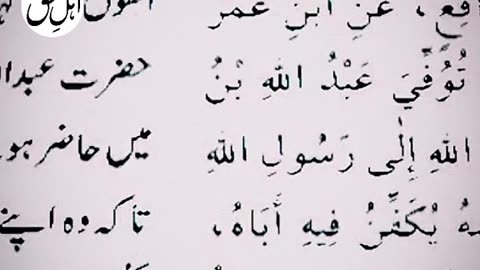 اہل حق
نَافِعٍ، عَنِ ابْنِ عُمَرَ
تُوُفِّيَ عَبْدُ اللهِ بْنُ
اللهِ إِلٰى رَسُولِ اللهِ
يُكَفِّنُ فِيهِ أَبَاهُ،
انھوں
حضرت عبدالـ
میں حاضر ہو
تا کہ وہ اپنے